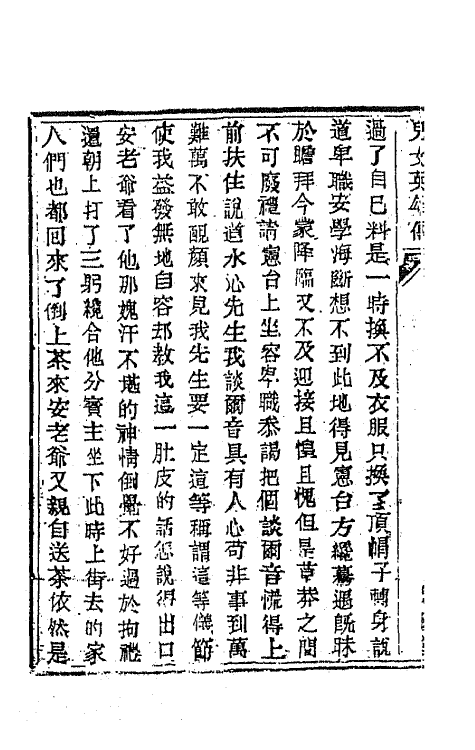 兒女英雄傳
過了自己料是一時換不及衣服只換了頂帽子轉身說
道卑職安學海斷想不到此地得見憲台方纔驀遇旣昧
於瞻拜今蒙降臨又不及迎接且愼且愧但是草莽之間
不可廢禮請憲台上坐容卑職叅謁把個談爾音慌得上
前扶住說道水心先生我談爾音具有人心苟非事到萬
難萬不敢靦顔來見我先生要一定這等稱謂這等儀節
使我益發無地自容却敎我這一肚皮的話怎說得出口
安老爺看了他那媿汗不堪的神情倒覺不好過於拘禮
還朝上打了三躬纔合他分賓主坐下此時上街去的家
人們也都回來了倒上茶來安老爺又親自送茶依然是